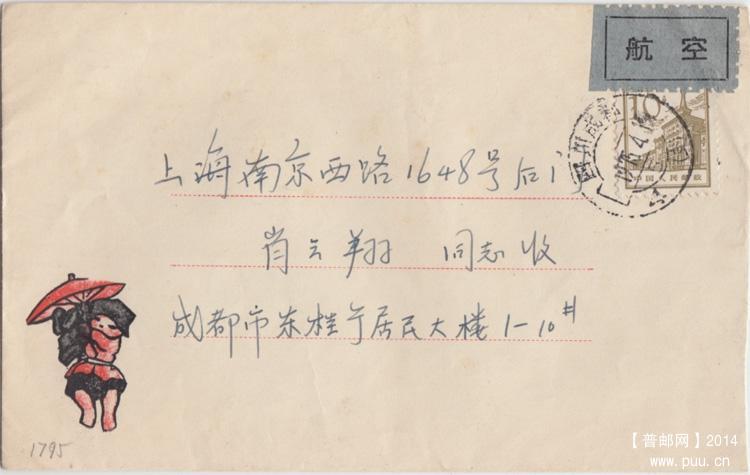 航空
10
中国人民邮政
上海南京西路1648号后门
肖云翔 同志收
成都市东桂亍居民大楼1-10#
1795
【普邮网】2014
www.puu.cn